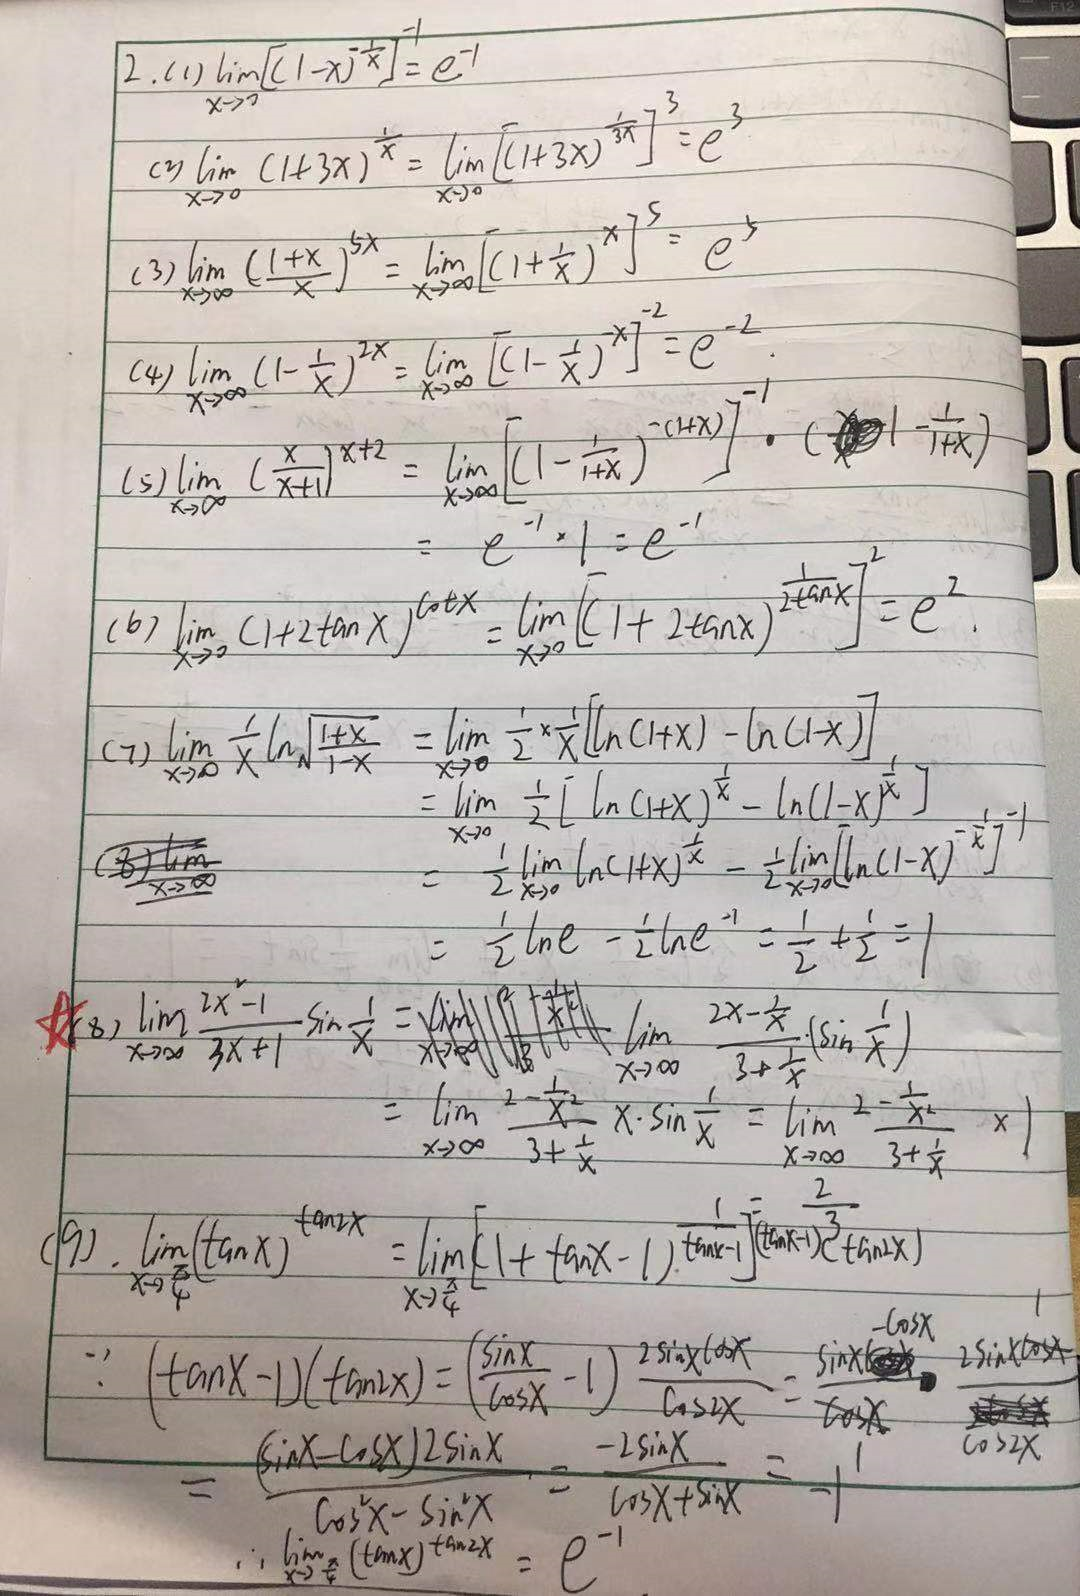 2.(1) lim x→0 [(1-x)^{-1/x}]^{-1} = e^{-1}
(2) lim x→0 (1+3x)^{1/x} = lim x→0 [(1+3x)^{1/3x}]^3 = e^3
(3) lim x→∞ (1+x/x)^{5x} = lim x→∞ [(1+1/x)^x]^5 = e^5
(4) lim x→∞ (1-1/x)^{2x} = lim x→∞ [(1-1/x)^{-x}]^{-2} = e^{-2}.
(5) lim x→∞ (x/x+1)^{x+2} = lim x→∞ [(1-1/1+x)^{-(1+x)}]^{-1} · (1-1/1+x)
= e^{-1}·1 = e^{-1}
(6) lim x→0 (1+2tanx)^{cotx} = lim x→0 [(1+2tanx)^{1/2tanx}]^2 = e^2.
(7) lim x→0 1/x ln√(1+x/1-x) = lim x→0 1/2 × 1/x [ln(1+x) - ln(1-x)]
= lim x→0 1/2 [ln(1+x)^{1/x} - ln(1-x)^{1/x}]
= 1/2 lim x→0 ln(1+x)^{1/x} - 1/2 lim x→0 [ln(1-x)^{-1/x}]^{-1}
= 1/2 lne - 1/2 lne^{-1} = 1/2 + 1/2 = 1
(8) lim x→∞ 2x²-1/3x+1 sin 1/x = lim x→∞ 2x-1/x / 3+1/x ·(sin 1/x)
= lim x→∞ 2-1/x² / 3+1/x x·sin 1/x = lim x→∞ 2-1/x² / 3+1/x ×1
= 2/3
(9). lim x→π/4 (tanx)^{tan2x} = lim x→π/4 [(1+tanx-1)^{1/tanx-1}]^{(tanx-1)(tan2x)}
∵ (tanx-1)(tan2x) = (sinx/cosx -1) 2sinxcosx/cos2x = sinx-cosx/cosx · 2sinxcosx/cos2x
= (sinx-cosx)2sinx/cos²x-sin²x = -2sinx/cosx+sinx = -1
∴ lim x→π/4 (tanx)^{tan2x} = e^{-1}